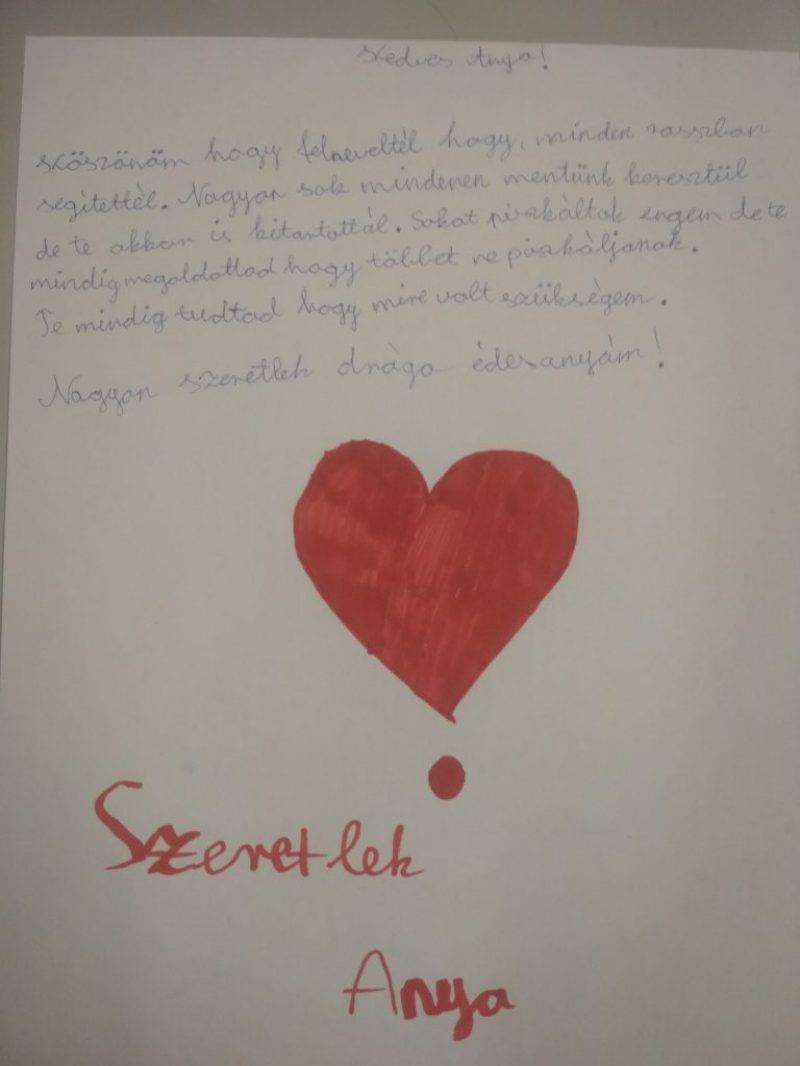 Kedves Anya!
Köszönöm hogy felneveltél hogy, minden rosszban
segítettél. Nagyon sok mindenen mentünk keresztül
de te akkor is kitartottál. Sokat piszkáltak engem de te
mindig megoldottad hogy többet ne piszkáljanak.
Te mindig tudtad hogy mire volt szükségem.
Nagyon szeretlek drága édesanyám!
Szeretlek
Anya